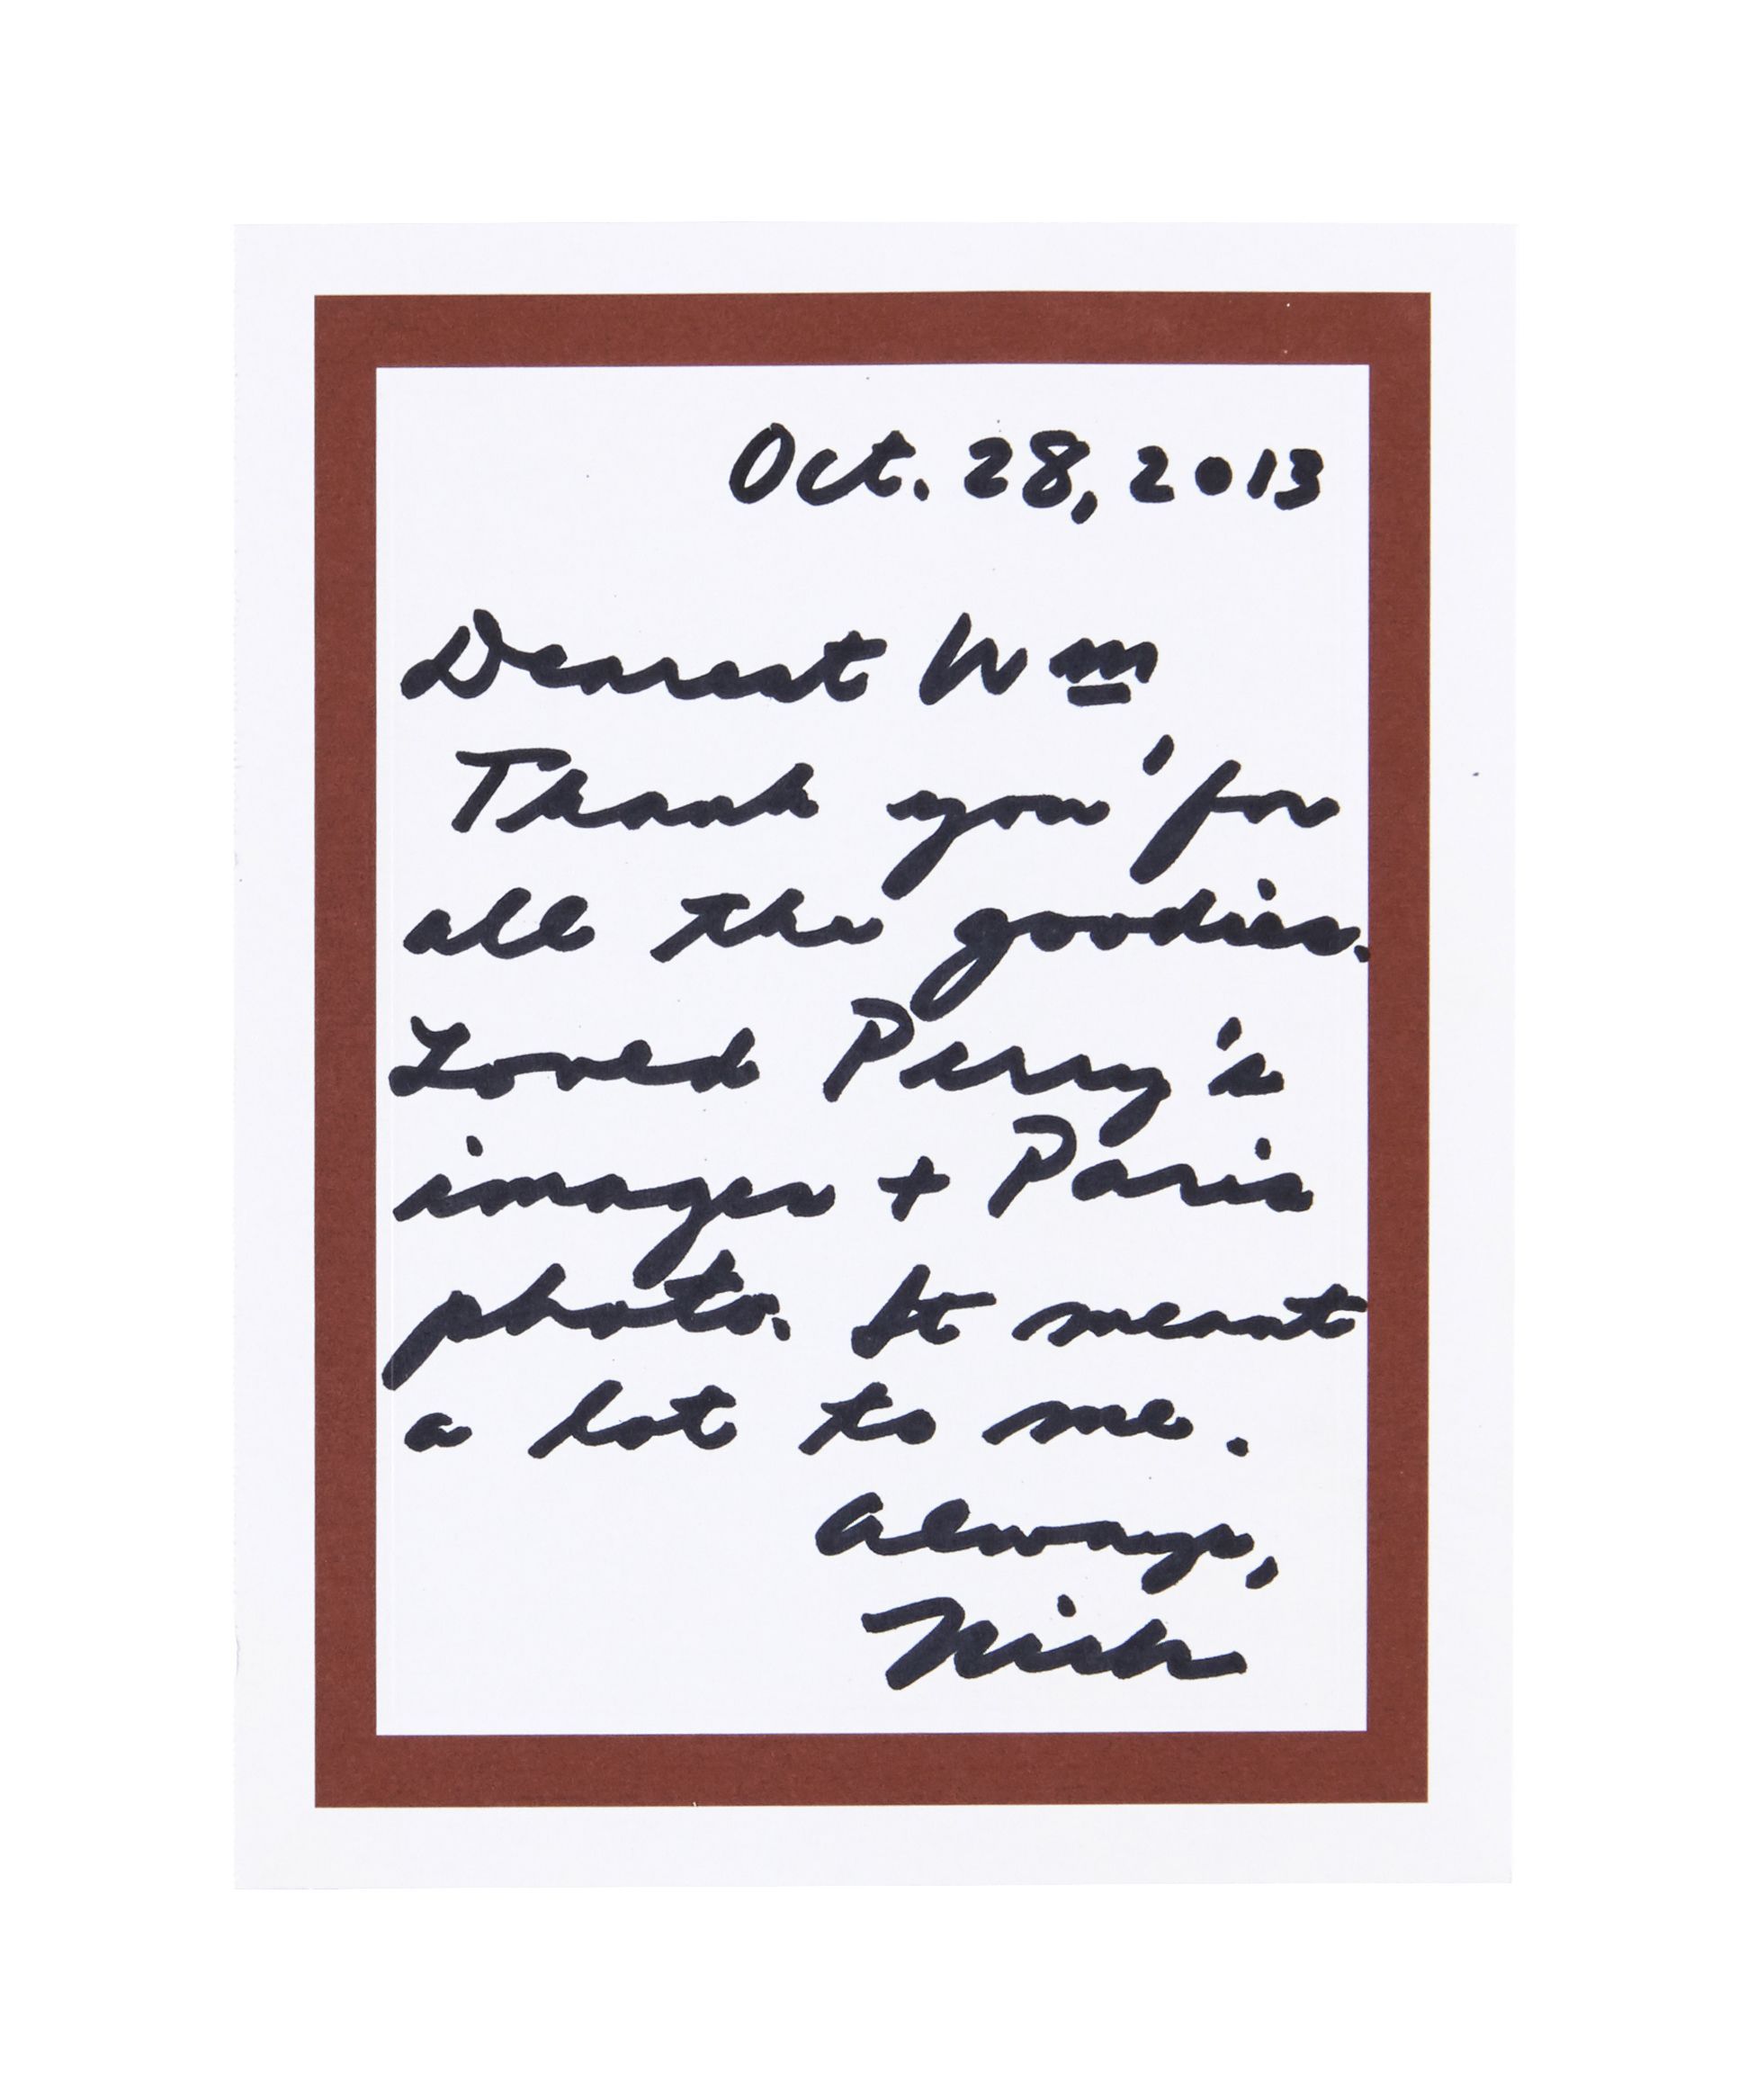 Oct. 28, 2013
Dearest Wm
Thank you for
all the goodies.
Loved Perry's
images + Paris
photo. It meant
a lot to me.
Always,
Nick